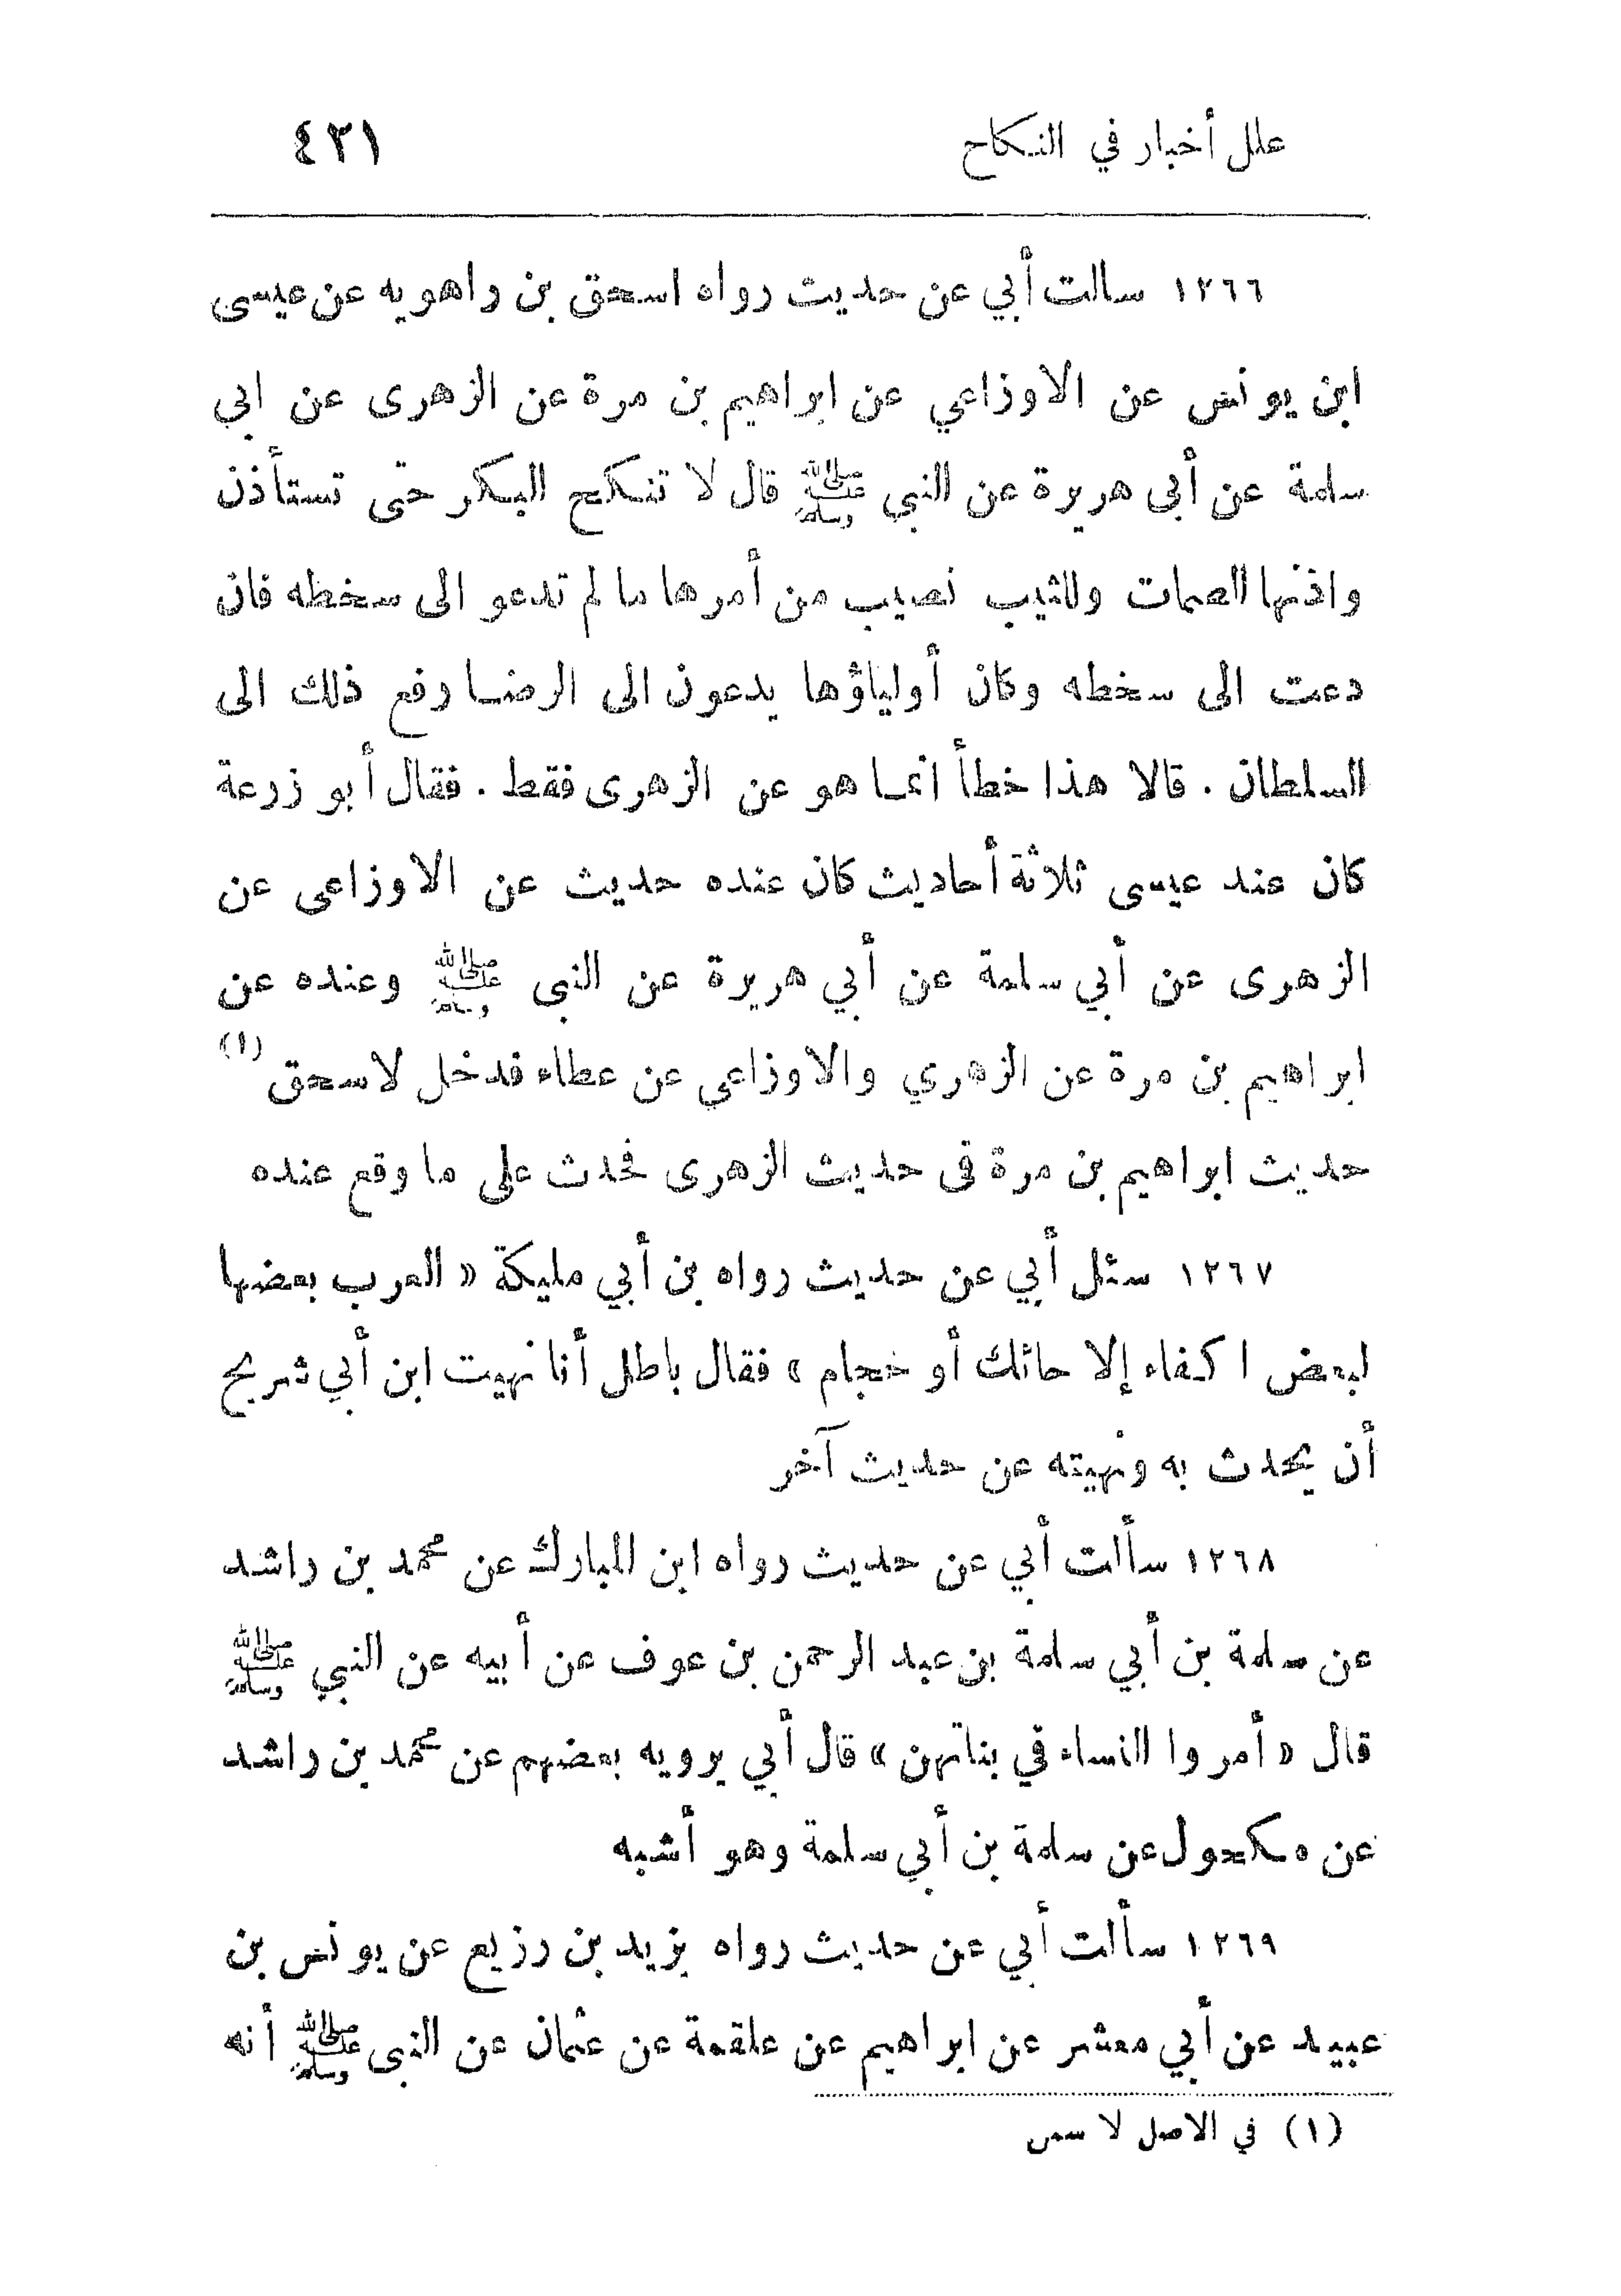 علل أخبار في النكاح ٤٢١
١٢٦٦ سالت أبي عن حديث رواه اسحق بن راهويه عن عيسى
ابن يونس عن الاوزاعي عن ابراهيم بن مرة عن الزهرى عن ابي
سلمة عن أبى هريرة عن النبي ﷺ قال لا تنكح البكر حتى تستأذن
واذنها الصمات وللثيب نصيب من أمرها ما لم تدعو الى سخطه فان
دعت الى سخطه وكان أولياؤها يدعون الى الرضا رفع ذلك الى
السلطان . قالا هذا خطأ انما هو عن الزهرى فقط . فقال أبو زرعة
كان عند عيسى ثلاثة أحاديث كان عنده حديث عن الاوزاعى عن
الزهرى عن أبي سلمة عن أبي هريرة عن النبى ﷺ وعنده عن
ابراهيم بن مرة عن الزهري والاوزاعي عن عطاء فدخل لاسحق (١)
حديث ابراهيم بن مرة فى حديث الزهرى فحدث على ما وقع عنده
١٢٦٧ سئل أبي عن حديث رواه بن أبي مليكة « العرب بعضها
لبعض اكفاء إلا حائك أو حجام » فقال باطل أنا نهيت ابن أبي شريح
أن يحدث به ونهيته عن حديث آخر
١٢٦٨ سألت أبي عن حديث رواه ابن المبارك عن محمد بن راشد
عن سلمة بن أبي سلمة بن عبد الرحمن بن عوف عن أبيه عن النبي ﷺ
قال « أمروا النساء في بناتهن » قال أبي يرويه بعضهم عن محمد بن راشد
عن مكحول عن سلمة بن أبي سلمة وهو أشبه
١٢٦٩ سألت أبي عن حديث رواه يزيد بن رزيع عن يونس بن
عبيد عن أبي معشر عن ابراهيم عن علقمة عن عثمان عن النبى ﷺ أنه
(١) في الاصل لا سمى